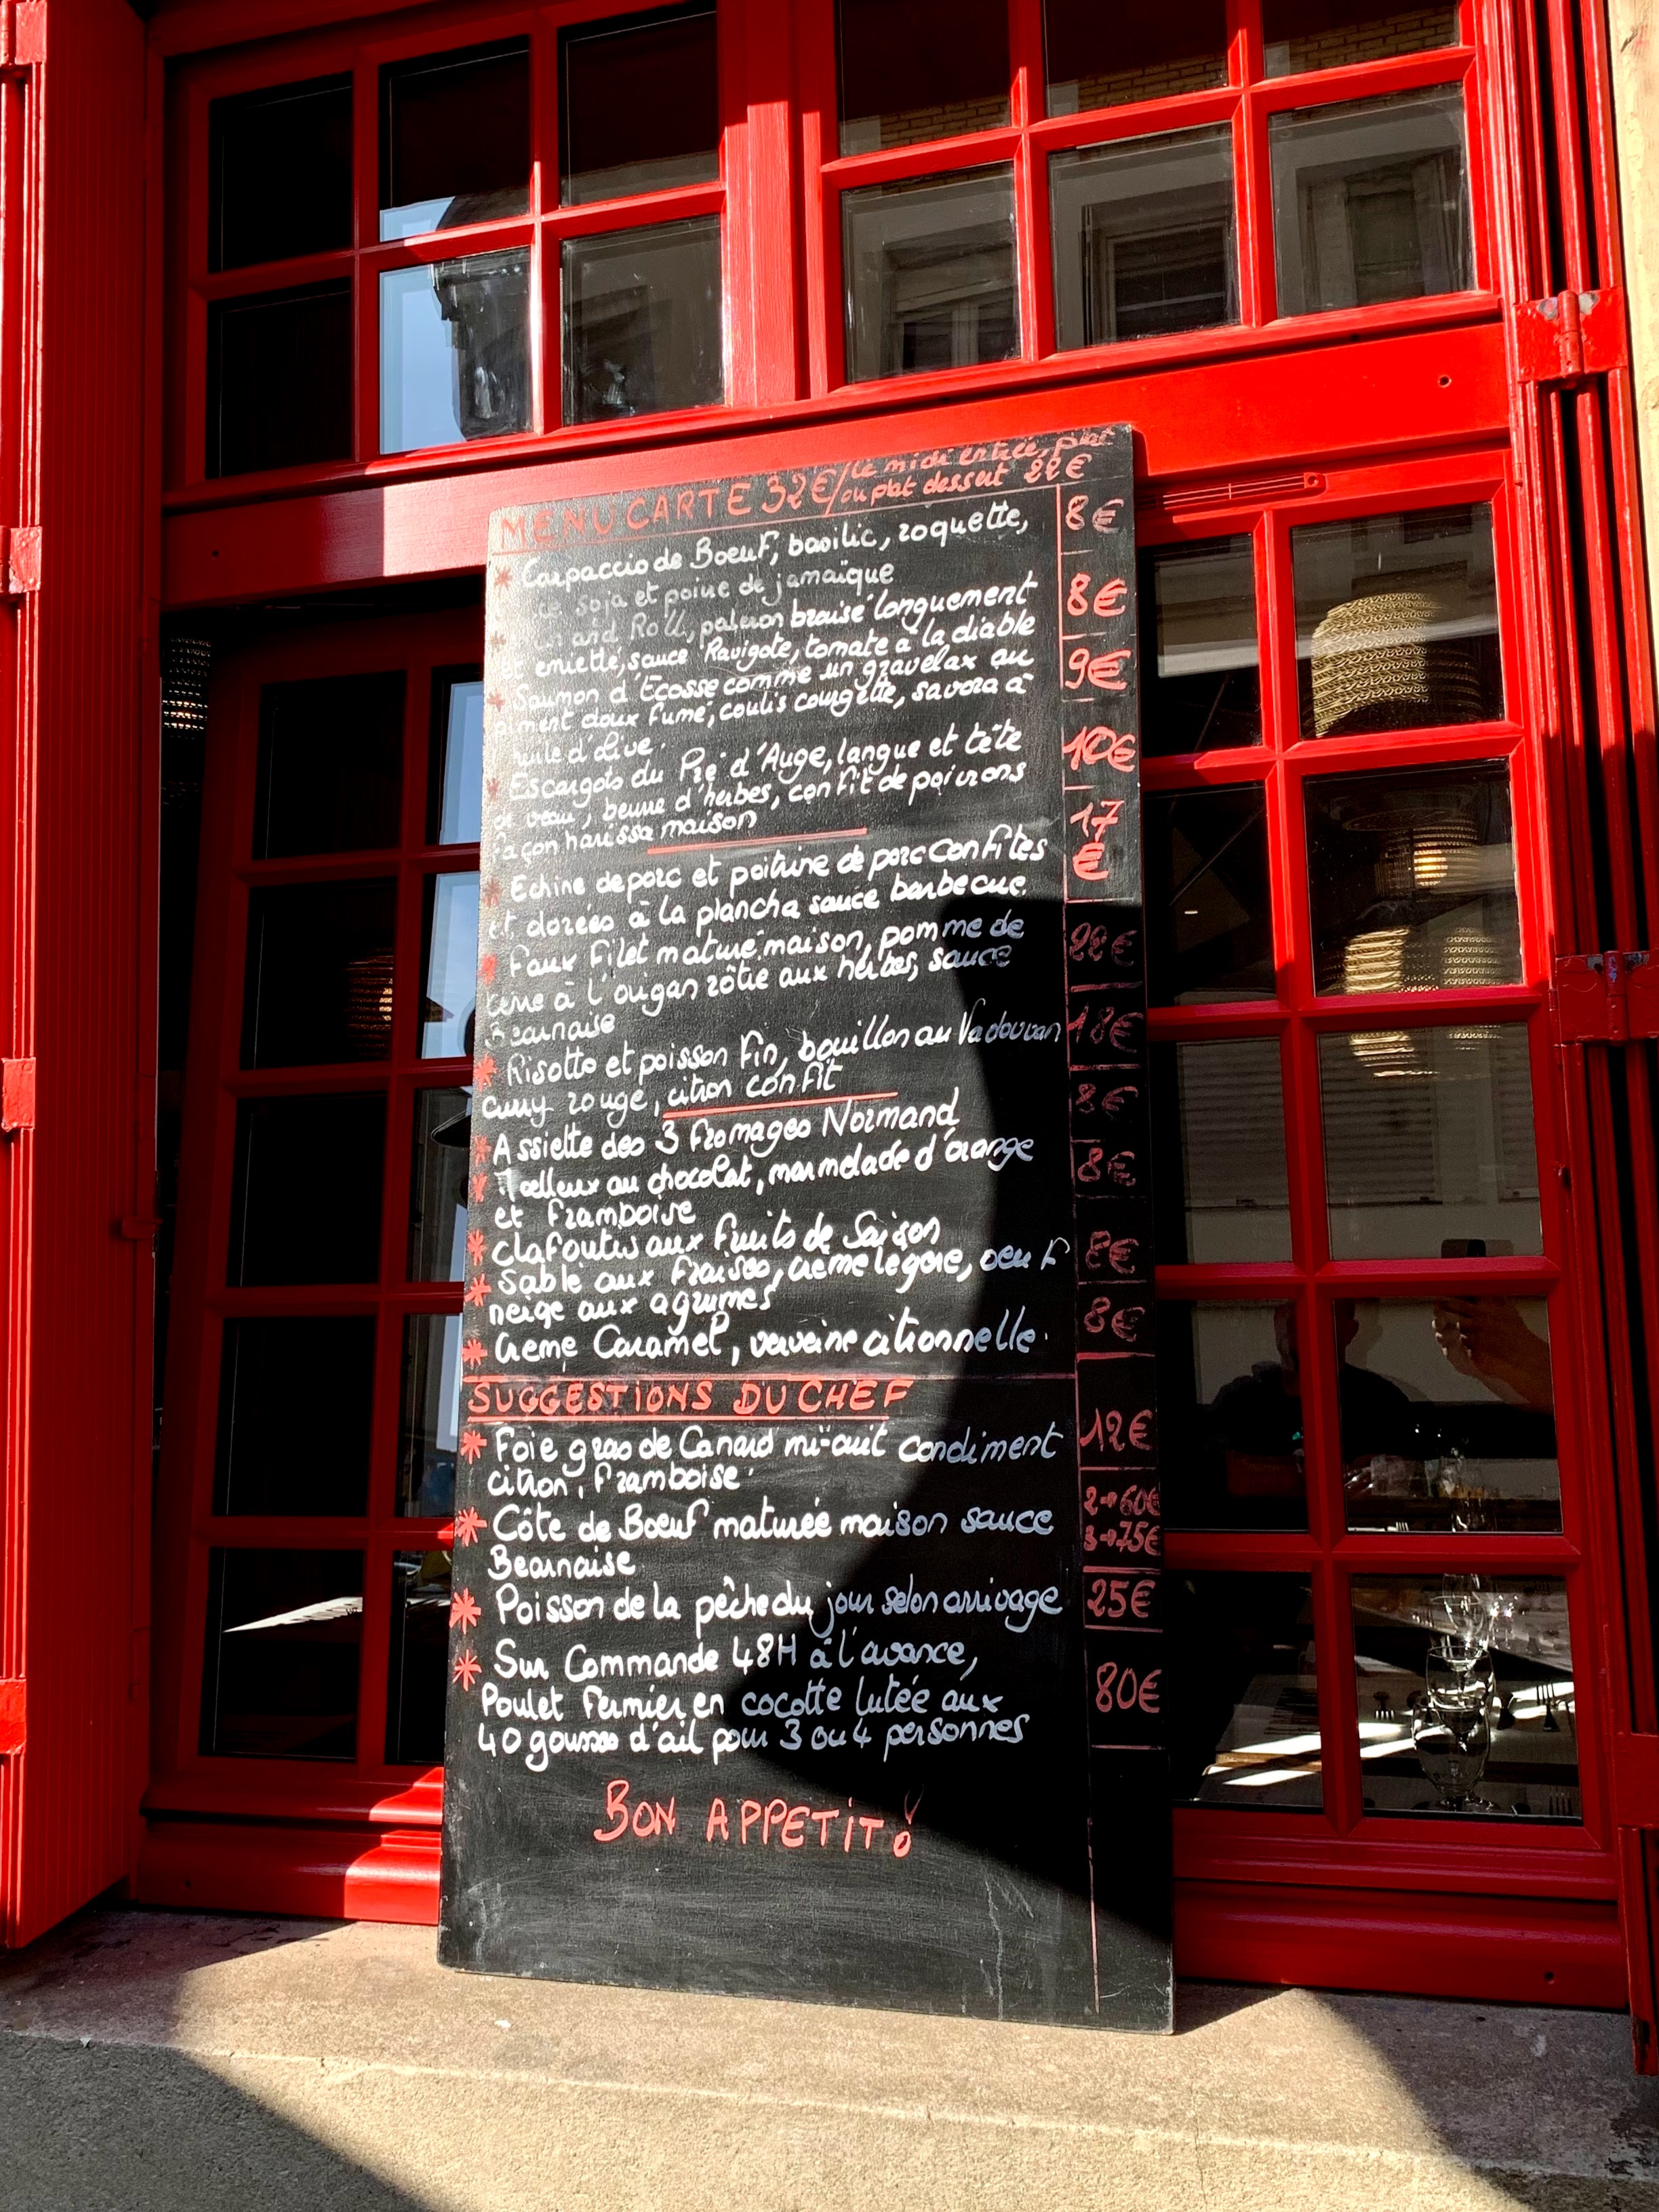 MENU CARTE 32€/ le midi entrée, plat
ou plat dessert 22€
* Carpaccio de Boeuf, basilic, roquette, 8€
soja et poivre de jamaïque
* and Roll, paleron braisé longuement 8€
et emietté, sauce Ravigote, tomate à la diable
* Saumon d'Ecosse comme un gravelax au 9€
piment doux fumé, coulis courgette, savora à
huile d'olive.
* Escargots du Pré d'Auge, langue et tête 10€
de veau, beurre d'herbes, confit de poivrons
façon harissa maison
* Echine de porc et poitrine de porc confites 17€
et dorées à la plancha sauce barbecue
* Faux filet maturé maison, pomme de 22€
terre à l'origan rôtie aux herbes, sauce
Bearnaise
* Risotto et poisson fin, bouillon au Vadouvan 18€
curry rouge, citron confit
* Assiette des 3 fromages Normand 8€
* Moelleux au chocolat, marmelade d'orange 8€
et framboise
* Clafoutis aux fruits de Saison 8€
* Sablé aux fraises, crème légère, oeuf
neige aux agrumes
* Creme Caramel, verveine citronnelle. 8€
SUGGESTIONS DU CHEF
* Foie gras de Canard mi-cuit condiment 12€
citron, framboise.
* Côte de Boeuf maturée maison sauce 2→60€
Bearnaise 3→75€
* Poisson de la pêche du jour selon arrivage 25€
* Sur Commande 48H à l'avance,
Poulet Fermier en cocotte lutée aux 80€
40 gousses d'ail pour 3 ou 4 personnes
BON APPETIT!